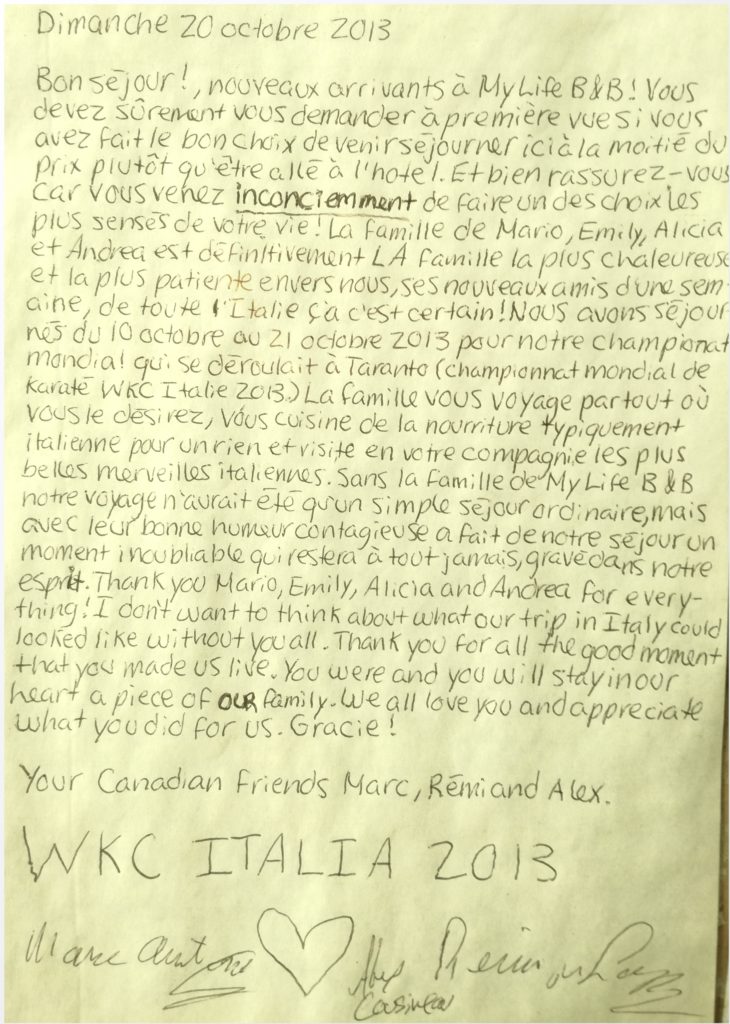 Dimanche 20 octobre 2013
Bon séjour!, nouveaux arrivants à My Life B&B! Vous
devez sûrement vous demander à première vue si vous
avez fait le bon choix de venir séjourner ici à la moitié du
prix plutôt qu'être allé à l'hotel. Et bien rassurez-vous
car vous venez inconciemment de faire un des choix les
plus sensés de votre vie! La famille de Mario, Emily, Alicia
et Andrea est définitivement LA famille la plus chaleureuse
et la plus patiente envers nous, ses nouveaux amis d'une sem-
aine, de toute l'Italie ça c'est certain! Nous avons séjour
nés du 10 octobre au 21 octobre 2013 pour notre championat
mondial qui se déroulait à Taranto (championnat mondial de
karaté WKC Italie 2013.) La famille vous voyage partout où
vous le désirez, vous cuisine de la nourriture typiquement
italienne pour un rien et visite en votre compagnie les plus
belles merveilles italiennes. Sans la famille de My Life B&B
notre voyage n'aurait été qu'un simple séjour ordinaire, mais
avec leur bonne humeur contagieuse a fait de notre séjour un
moment inoubliable qui restera à tout jamais, gravé dans notre
esprit. Thank you Mario, Emily, Alicia and Andrea for every-
thing! I don't want to think about what our trip in Italy could
looked like without you all. Thank you for all the good moment
that you made us live. You were and you will stay in our
heart a piece of our family. We all love you and appreciate
what you did for us. Gracie!
Your Canadian friends Marc, Rémi and Alex.
WKC ITALIA 2013
Marc
Alex Rémi
Cousineau